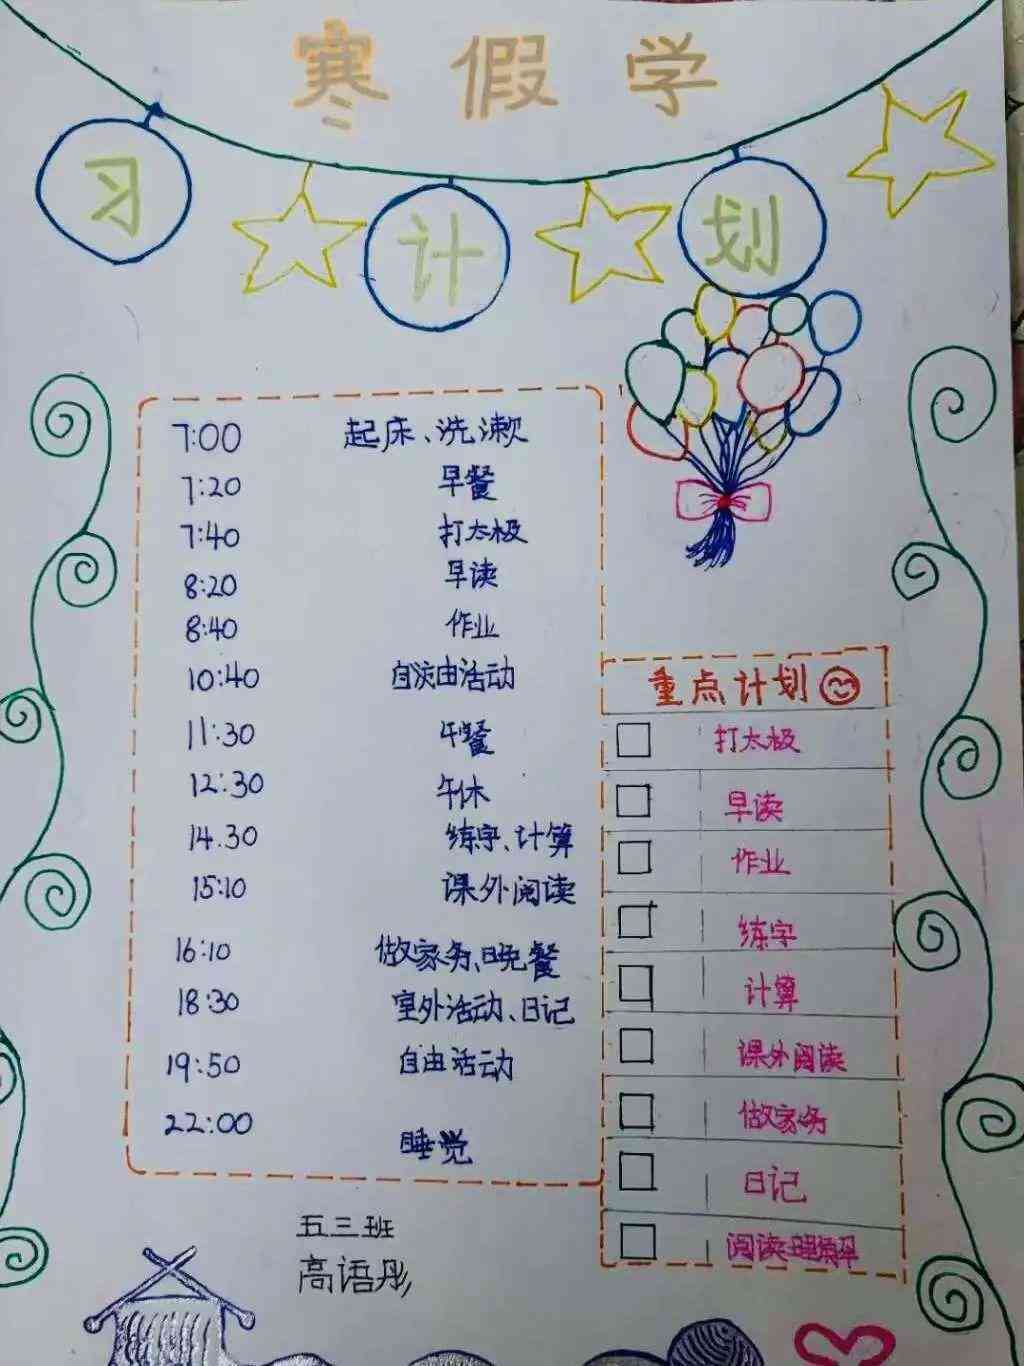 寒假学
习计划
7:00 起床、洗漱
7:20 早餐
7:40 打太极
8:20 早读
8:40 作业
10:40 自由活动
11:30 午餐
12:30 午休
14.30 练字、计算
15:10 课外阅读
16:10 做家务、晚餐
18:30 室外活动、日记
19:50 自由活动
22:00 睡觉
重点计划
打太极
早读
作业
练字
计算
课外阅读
做家务
日记
阅读理解
五三班
高语彤